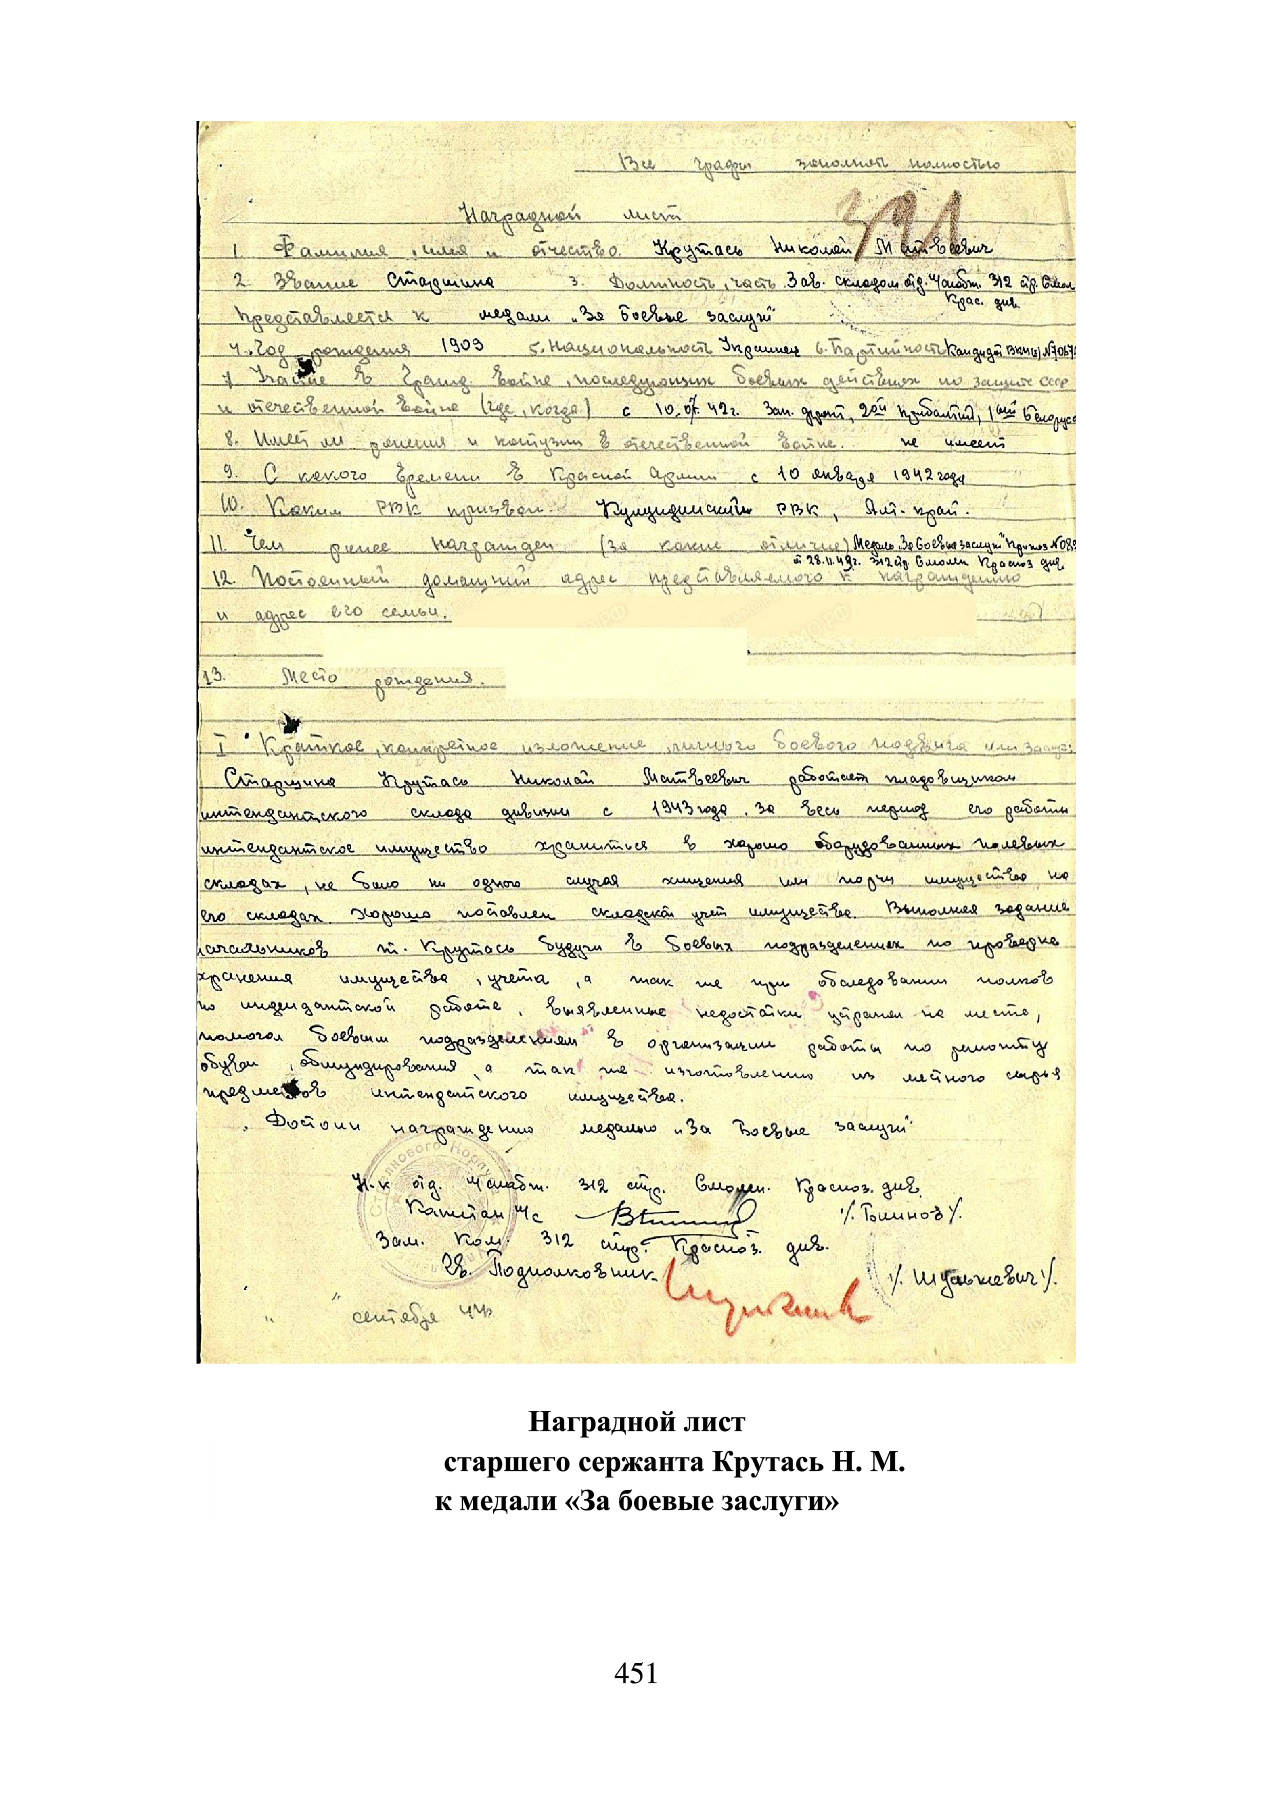 Все графы заполнять полностью
391
Наградной лист
1. Фамилия, имя и отчество Крутась Николай Матвеевич
2. Звание Старшина 3. Должность, часть Зав. складом отд. 312 стр. Смол.
Красн. див.
Представляется к медали „За боевые заслуги"
4. Год рождения 1903 5. Национальность Украинец 6. Партийность Кандидат ВКП(б)
7. Участие в Гражд. войне, последующих боевых действиях по защите СССР
и отечественной войне (где, когда) с 10.07.42г. Зап. фронт, 2ой Прибалт., 1ый Белорус
8. Имеет ли ранения и контузии в отечественной войне. не имеет
9. С какого времени в Красной Армии с 10 января 1942 года
10. Каким РВК призван Кулундинский РВК, Алт-край.
11. Чем ранее награжден (за какие отличия) Медаль „За боевые заслуги" Приказ
312 стр. Смолен Красноз див
12. Постоянный домашний адрес представляемого к награждению
и адрес его семьи.
13. Место рождения.
I Краткое, конкретное изложение личного боевого подвига или заслуг:
Старшина Крутась Николай Матвеевич работает кладовщиком
интендантского склада дивизии с 1943 года. За весь период его работы
интендантское имущество храниться в хорошо оборудованных полевых
складах, не было ни одного случая хищения или порчи имущества на
его складах. Хорошо поставлен складской учет имущества. Выполняя задание
начальников т. Крутась будучи в боевых подразделениях по проверке
хранения имущества, учета, а так же при обследовании полков
по индендантской работе, выявленные недостатки устранял на месте,
помогал боевым подразделениям в организации работы по ремонту
обуви, обмундирования, а так же изготовлению из местного сырья
предметов интендантского имущества.
Достоин награждению медалью „За Боевые заслуги"
Н-к отд. 312 стр. Смолен. Красноз. див.
Капитан и/с /Блинов/.
Зам. Ком. 312 стр. Красноз. див.
Гв. Подполковник /Шулькевич/.
" " сентября 44г.
Наградной лист
старшего сержанта Крутась Н. М.
к медали «За боевые заслуги»
451